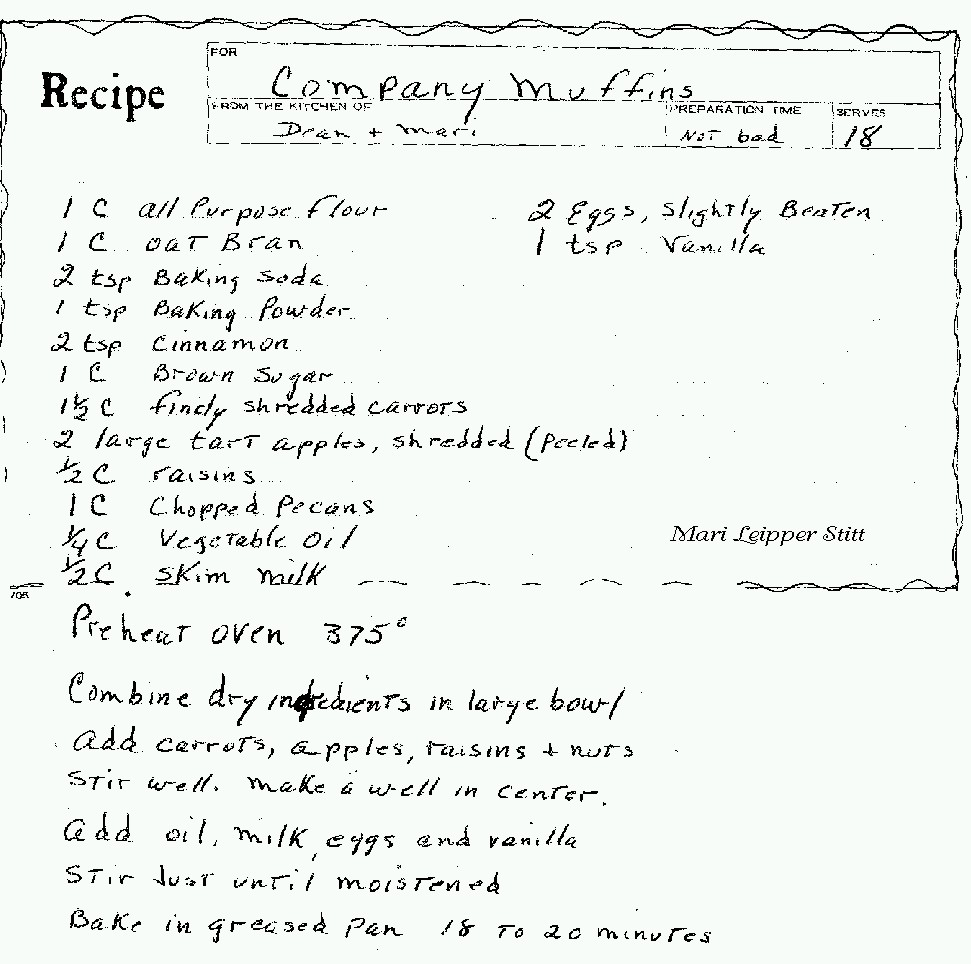 Recipe
FOR
Company Muffins
FROM THE KITCHEN OF
Dean + Mari
PREPARATION TIME
Not bad
SERVES
18
1 C all Purpose flour
1 C oat Bran
2 tsp Baking Soda
1 tsp Baking Powder
2 tsp Cinnamon
1 C Brown Sugar
1½ C finely shredded carrots
2 large tart apples, shredded (peeled)
½ C raisins
1 C Chopped Pecans
¼ C Vegetable Oil
½ C Skim milk
2 Eggs, slightly Beaten
1 tsp Vanilla
Mari Leipper Stitt
Preheat oven 375°
Combine dry ingredients in large bowl
add carrots, apples, raisins + nuts
Stir well. Make a well in center.
add oil, milk, eggs and vanilla
Stir Just until moistened
Bake in greased pan 18 to 20 minutes